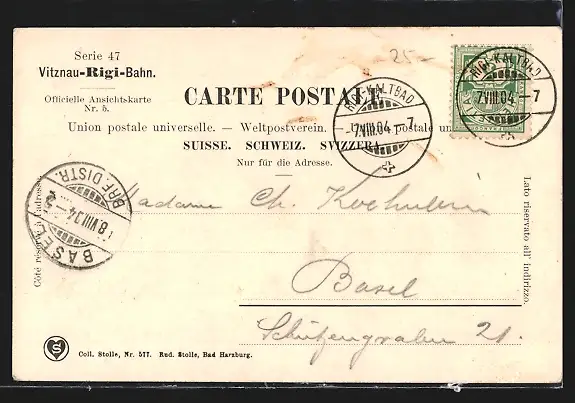 Serie 47
Vitznau-Rigi-Bahn.
Officielle Ansichtskarte
Nr. 5.
25-
CARTE POSTALE
Union postale universelle. — Weltpostverein. — Unione postale un
SUISSE. SCHWEIZ. SVIZZERA.
Nur für die Adresse.
RIGI-KALTBAD
7.VIII.04.-7
RIGI-KALTBAD
7.VIII.04.-7
BASEL
8.VIII.04
BRF.DISTR.
Côté réservé à l'adresse.
Lato riservato all' indirizzo.
Madame Ch.
Basel
Schützengraben 21.
Coll. Stolle, Nr. 577. Rud. Stolle, Bad Harzburg.